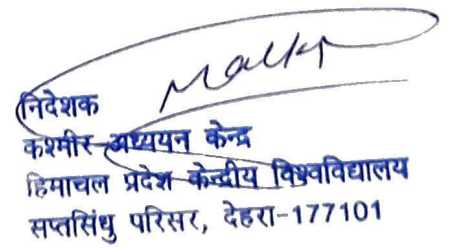 निदेशक
कश्मीर अध्ययन केन्द्र
हिमाचल प्रदेश केन्द्रीय विश्वविद्यालय
सप्तसिंधु परिसर, देहरा-177101